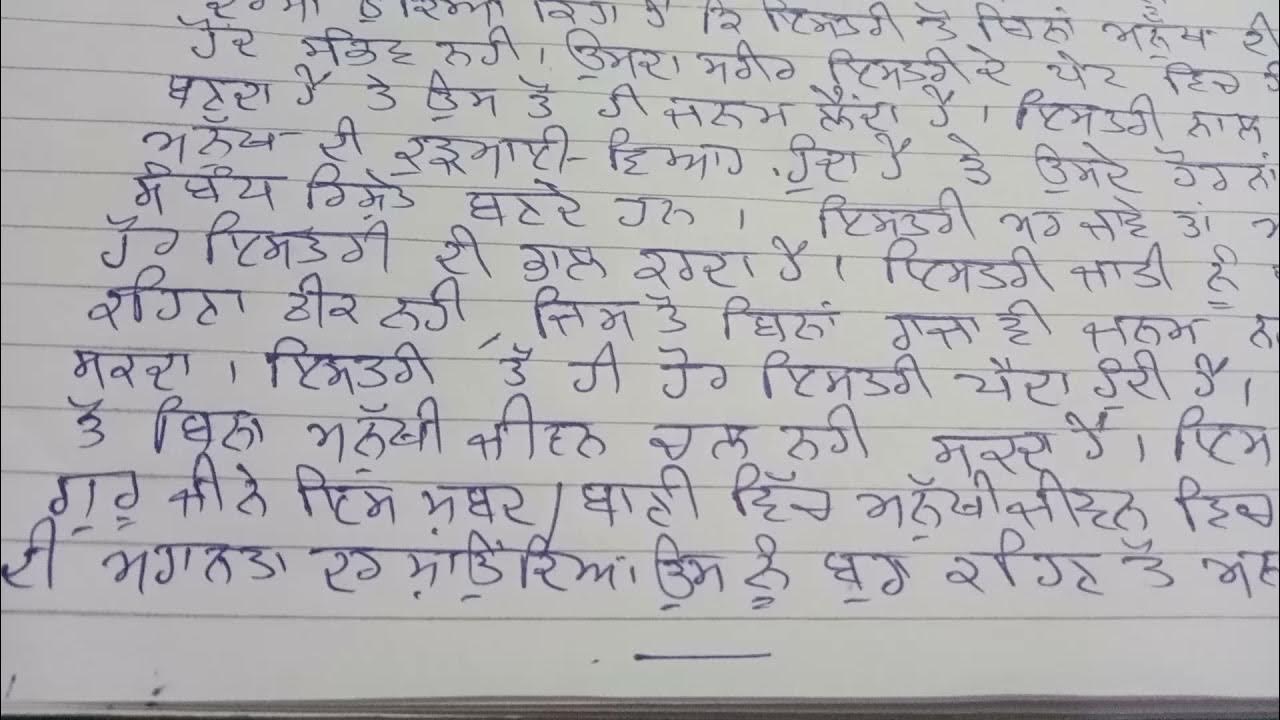 ਦਰਸਾਉਂਦਿਆਂ ਕਿਹਾ ਹੈ ਕਿ ਇਸਤਰੀ ਤੋਂ ਬਿਨਾਂ ਮਨੁੱਖ ਦੀ
ਹੋਂਦ ਸੰਭਵ ਨਹੀ। ਉਸਦਾ ਸਰੀਰ ਇਸਤਰੀ ਦੇ ਪੇਟ ਵਿਚ
ਬਣਦਾ ਹੈ ਤੇ ਉਸ ਤੋਂ ਹੀ ਜਨਮ ਲੈਂਦਾ ਹੈ। ਇਸਤਰੀ ਨਾਲ
ਮਨੁੱਖ ਦੀ ਕੁੜਮਾਈ-ਵਿਆਹ ਹੁੰਦਾ ਹੈ ਤੇ ਉਸਦੇ ਹੋਰਨਾਂ
ਸੰਬੰਧ ਰਿਸ਼ਤੇ ਬਣਦੇ ਹਨ। ਇਸਤਰੀ ਮਰ ਜਾਵੇ ਤਾਂ
ਹੋਰ ਇਸਤਰੀ ਦੀ ਭਾਲ ਕਰਦਾ ਹੈ। ਇਸਤਰੀ ਜਾਤੀ ਨੂੰ
ਕਹਿਣਾ ਠੀਕ ਨਹੀ, ਜਿਸ ਤੋਂ ਬਿਨਾਂ ਰਾਜਾ ਵੀ ਜਨਮ
ਸਕਦਾ। ਇਸਤਰੀ ਤੋਂ ਹੀ ਹੋਰ ਇਸਤਰੀ ਪੈਦਾ ਹੁੰਦੀ ਹੈ।
ਤੋਂ ਬਿਨਾਂ ਮਨੁੱਖੀ ਜੀਵਨ ਚਲ ਨਹੀ ਸਕਦਾ ਹੈ। ਇਸ
ਗੁਰੂ ਜੀ ਨੇ ਇਸ ਸ਼ਬਦ/ਬਾਣੀ ਵਿੱਚ ਮਨੁੱਖੀ ਜੀਵਨ ਵਿਚ
ਦੀ ਮਹਾਨਤਾ ਦਰਸਾਉਂਦਿਆਂ ਉਸ ਨੂੰ ਬੁਰਾ ਕਹਿਣ ਤੋਂ